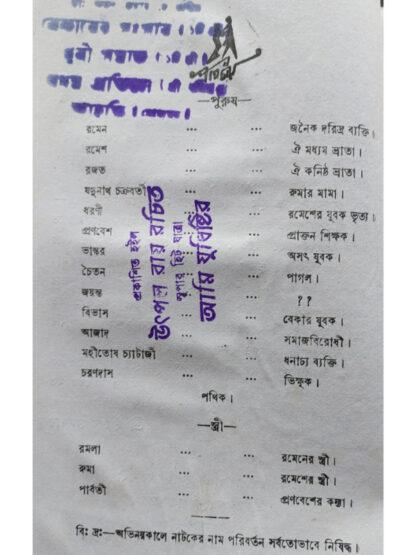 —পুরুষ—
রমেন ... ... জনৈক দরিদ্র ব্যক্তি।
রমেশ ... ... ঐ মধ্যম ভ্রাতা।
রজত ... ... ঐ কনিষ্ঠ ভ্রাতা।
যদুনাথ চক্রবর্তী ... রুমার মামা।
ধরণী ... রমেশের যুবক ভৃত্য।
প্রণবেশ ... প্রাক্তন শিক্ষক।
ভাস্কর ... অসৎ যুবক।
চৈতন ... পাগল।
জয়ন্ত ... ??
বিভাস ... বেকার যুবক।
আজাদ ... সমাজবিরোধী।
মহীতোষ চ্যাটার্জী ... ধনাঢ্য ব্যক্তি।
চরণদাস ... ... ভিক্ষুক।
পথিক।
প্রকাশিত হইল
উৎপল রায় রচিত
সুপার হিট যাত্রা
আমি যুধিষ্ঠির
—স্ত্রী—
রমলা ... ... রমেনের স্ত্রী।
রুমা ... ... রমেশের স্ত্রী।
পার্বতী ... ... প্রণবেশের কন্যা।
বিঃ দ্রঃ—অভিনয়কালে নাটকের নাম পরিবর্তন সর্বতোভাবে নিষিদ্ধ।